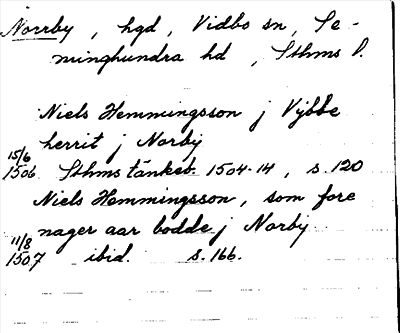 Norrby, hgd, Vidbo sn, Se-
minghundra hd, Sthms l.
Niels Hemmingsson j Vybbe
herrit j Norby
15/6
1506 Sthms tänkeb. 1504-14, s. 120
Niels Hemmingsson, som fore
nager aar bodde j Norby
11/8
1507 ibid. s. 166.